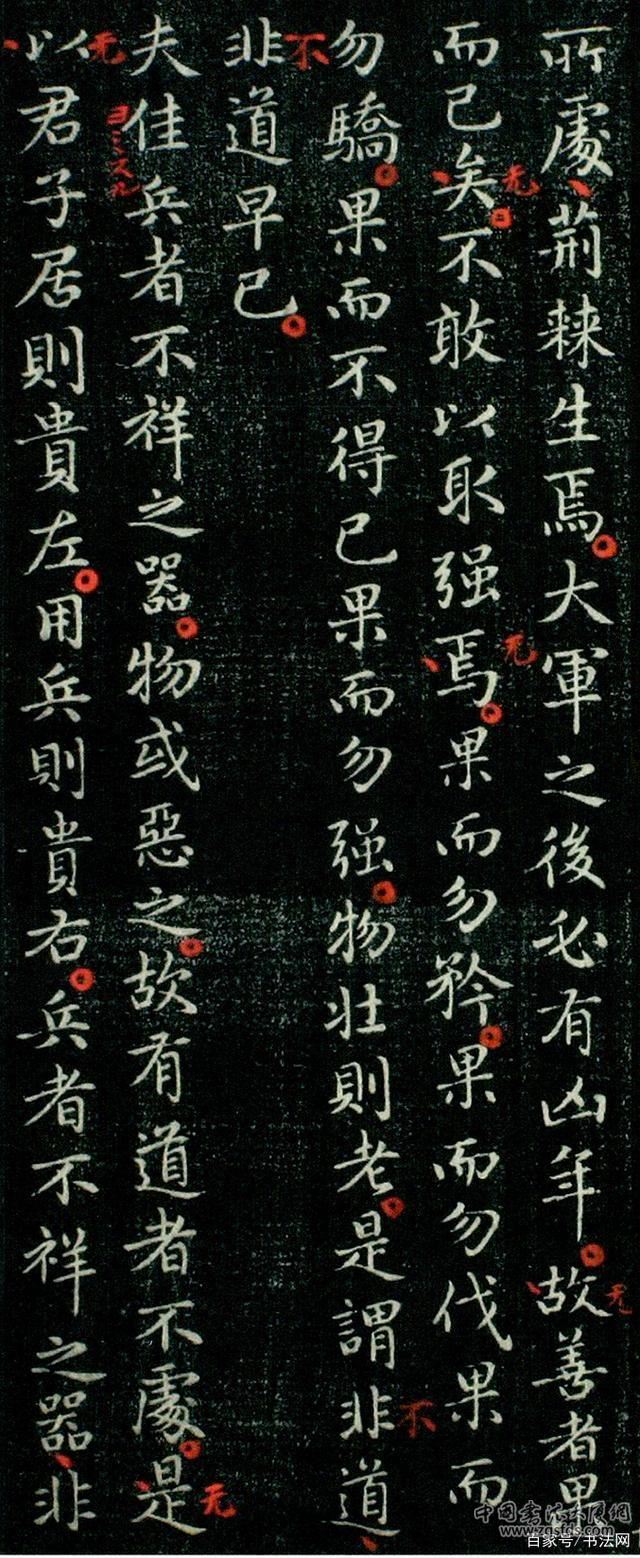 所處荊棘生焉大軍之後必有凶年故善者果
无
而已矣不敢以取强焉果而勿矜果而勿伐果而
无
无
勿驕果而不得已果而勿强物壯則老是謂非道
不
非道早已
不
夫佳兵者不祥之器物或惡之故有道者不處是
无
以君子居則貴左用兵則貴右兵者不祥之器非
无
百家号/书法网